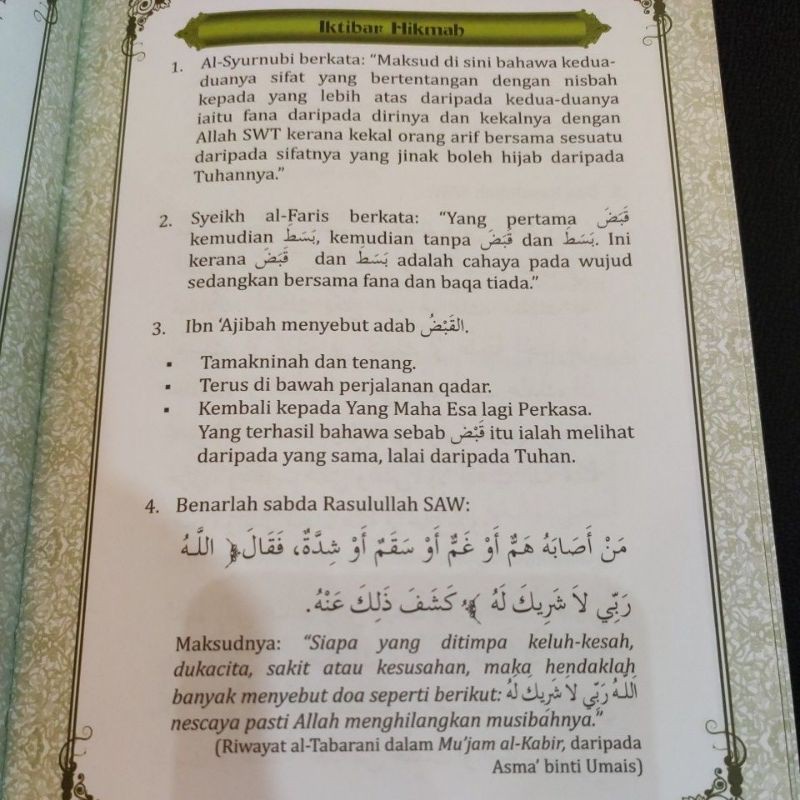 Iktibar Hikmah
1. Al-Syurnubi berkata: “Maksud di sini bahawa kedua-
duanya sifat yang bertentangan dengan nisbah
kepada yang lebih atas daripada kedua-duanya
iaitu fana daripada dirinya dan kekalnya dengan
Allah SWT kerana kekal orang arif bersama sesuatu
daripada sifatnya yang jinak boleh hijab daripada
Tuhannya.”
2. Syeikh al-Faris berkata: “Yang pertama قَبَضَ
kemudian بَسَطَ, kemudian tanpa قَبَضَ dan بَسَطَ. Ini
kerana قَبَضَ dan بَسَطَ adalah cahaya pada wujud
sedangkan bersama fana dan baqa tiada.”
3. Ibn ‘Ajibah menyebut adab القَبْضُ.
▪ Tamakninah dan tenang.
▪ Terus di bawah perjalanan qadar.
▪ Kembali kepada Yang Maha Esa lagi Perkasa.
Yang terhasil bahawa sebab قَبْض itu ialah melihat
daripada yang sama, lalai daripada Tuhan.
4. Benarlah sabda Rasulullah SAW:
مَنْ أَصَابَهُ هَمٌّ أَوْ غَمٌّ أَوْ سَقَمٌ أَوْ شِدَّةٌ، فَقَالَ ﴿ اللَّهُ
رَبِّي لاَ شَرِيكَ لَهُ ﴾ كَشَفَ ذَلِكَ عَنْهُ.
Maksudnya: “Siapa yang ditimpa keluh-kesah,
dukacita, sakit atau kesusahan, maka hendaklah
banyak menyebut doa seperti berikut: اللَّهُ رَبِّي لاَ شَرِيكَ لَهُ
nescaya pasti Allah menghilangkan musibahnya.”
(Riwayat al-Tabarani dalam Mu’jam al-Kabir, daripada
Asma’ binti Umais)